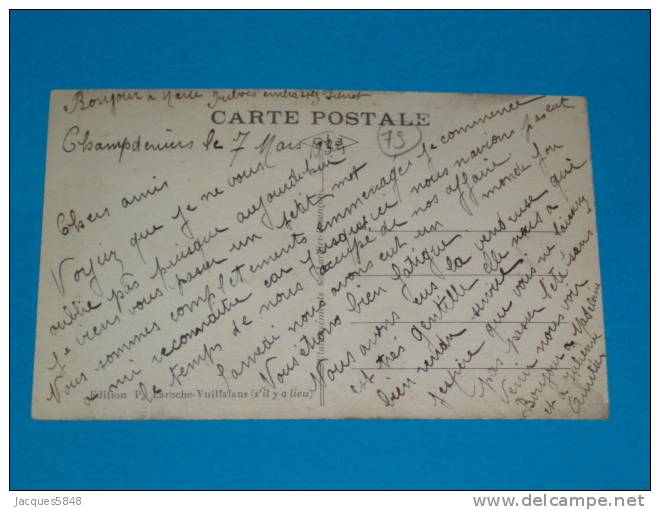 Bonjour a Marie embrassez
CARTE POSTALE
79
Champdeniers le 7 Mars 1922
Chers amis
Voyez que je ne vous
oublie pas puisque aujourd'hui
je viens vous passer un petit mot
Nous sommes completements emménagés je commence
a mi reconnaitre car jusqu'ici nous navions pas eut
le temps de nous occupé de nos affaire
Samedi nous avons eut un monde fou
Nous étions bien fatigué
Nous avons eus la vendeuse qui
est très gentille elle nous a
bien rendu service
Jespère que vous ne laisserez
pas passer l'été sans
venir nous voir
Bonjour a Madeleine
et a
Edition P. Laroche-Vuillalans (s'il y a lieu)
Jacques5848
delcampe.net